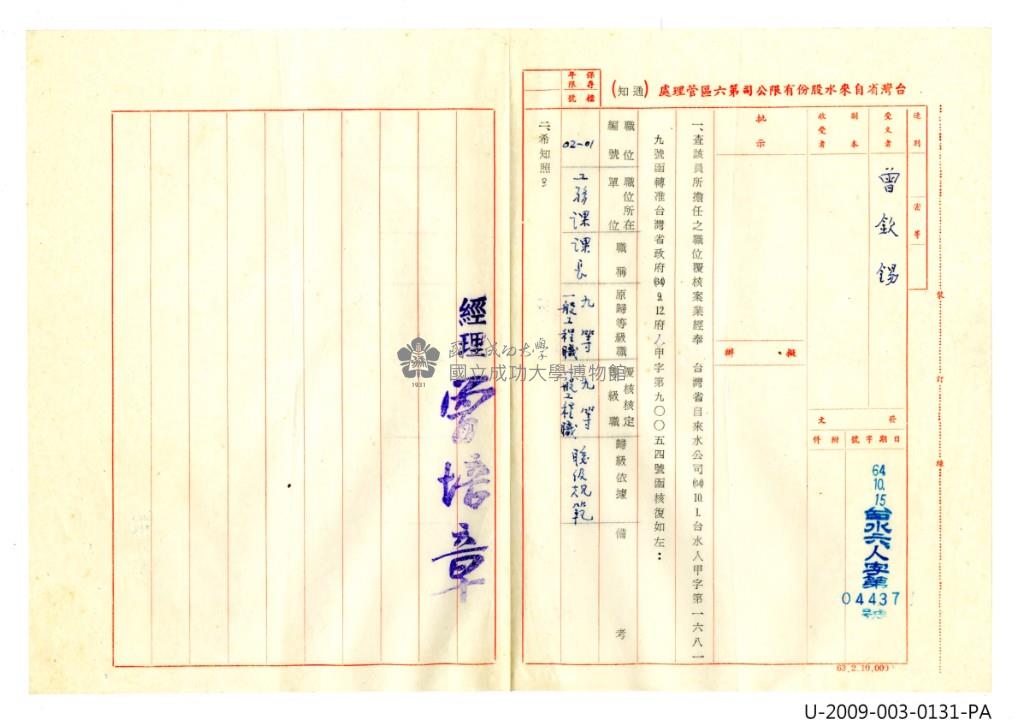 台灣省自來水股份有限公司第六區管理處（通知）
保存年限
檔號
速別
密等
受文者
曾欽錫
副本
收受者
批示
擬辦
發文
日期字號附件
64 10. 15
台水六人字第
04437
號
一、查該員所擔任之職位覆核案業經奉 台灣省自來水公司(64) 10. 1. 台水人甲字第一六八一
九號函轉准台灣省政府(64) 9. 12. 府人甲字第九〇〇五四號函核復如左：
職位編號
職位所在單位
職稱
原歸等級職
覆核核定等級職
歸級依據
備考
02-01
工務課
課長
九等
一般工程職
九等
一般工程職
職級規範
二、希知照。
經理 曾培章
裝
訂
線
63.2.10,000
1931
國立成功大學
國立成功大學博物館
U-2009-003-0131-PA